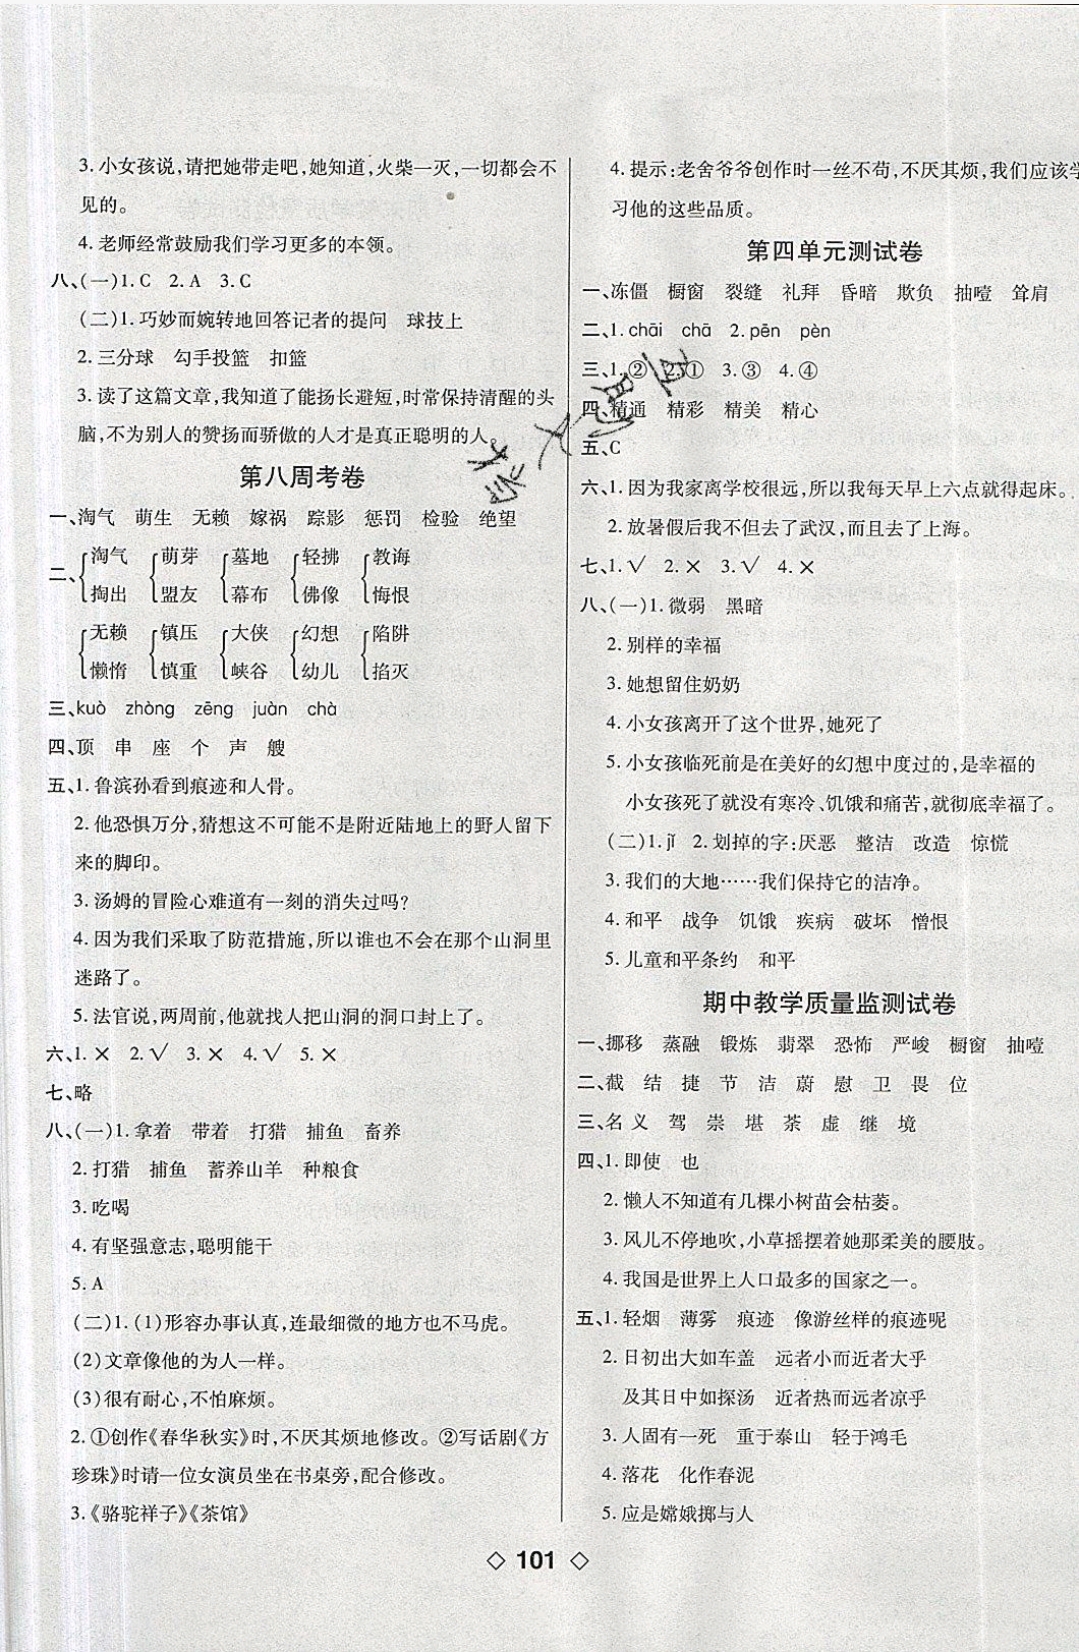 3. 小女孩说,请把她带走吧,她知道,火柴一灭,一切都会不
见的。
4. 老师经常鼓励我们学习更多的本领。
八、(一)1. C 2. A 3. C
(二)1. 巧妙而婉转地回答记者的提问 球技上
2. 三分球 勾手投篮 扣篮
3. 读了这篇文章,我知道了能扬长避短,时常保持清醒的头
脑,不为别人的赞扬而骄傲的人才是真正聪明的人。
第八周考卷
一、淘气 萌生 无赖 嫁祸 踪影 惩罚 检验 绝望
二、
淘气 萌芽 墓地 轻拂 教诲
掏出 盟友 幕布 佛像 悔恨
无赖 镇压 大侠 幻想 陷阱
懒惰 慎重 峡谷 幼儿 掐灭
三、kuò zhòng zēng juàn chà
四、顶 串 座 个 声 艘
五、1. 鲁滨孙看到痕迹和人骨。
2. 他恐惧万分,猜想这不可能不是附近陆地上的野人留下
来的脚印。
3. 汤姆的冒险心难道有一刻的消失过吗?
4. 因为我们采取了防范措施,所以谁也不会在那个山洞里
迷路了。
5. 法官说,两周前,他就找人把山洞的洞口封上了。
六、1. × 2. √ 3. × 4. √ 5. ×
七、略
八、(一)1. 拿着 带着 打猎 捕鱼 畜养
2. 打猎 捕鱼 蓄养山羊 种粮食
3. 吃喝
4. 有坚强意志,聪明能干
5. A
(二)1. (1)形容办事认真,连最细微的地方也不马虎。
(2)文章像他的为人一样。
(3)很有耐心,不怕麻烦。
2. ①创作《春华秋实》时,不厌其烦地修改。②写话剧《方
珍珠》时请一位女演员坐在书桌旁,配合修改。
3.《骆驼祥子》《茶馆》
4. 提示:老舍爷爷创作时一丝不苟,不厌其烦,我们应该学
习他的这些品质。
第四单元测试卷
一、冻僵 橱窗 裂缝 礼拜 昏暗 欺负 抽噎 耸肩
二、1. chāi chā 2. pēn pèn
三、1. ② 2. ① 3. ③ 4. ④
四、精通 精彩 精美 精心
五、C
六、1. 因为我家离学校很远,所以我每天早上六点就得起床。
2. 放暑假后我不但去了武汉,而且去了上海。
七、1. √ 2. × 3. √ 4. ×
八、(一)1. 微弱 黑暗
2. 别样的幸福
3. 她想留住奶奶
4. 小女孩离开了这个世界,她死了
5. 小女孩临死前是在美好的幻想中度过的,是幸福的
小女孩死了就没有寒冷、饥饿和痛苦,就彻底幸福了。
(二)1. jǐ 2. 划掉的字:厌恶 整洁 改造 惊慌
3. 我们的大地……我们保持它的洁净。
4. 和平 战争 饥饿 疾病 破坏 憎恨
5. 儿童和平条约 和平
期中教学质量监测试卷
一、挪移 蒸融 锻炼 翡翠 恐怖 严峻 橱窗 抽噎
二、截 结 捷 节 洁 蔚 慰 卫 畏 位
三、名 义 驾 崇 堪 荼 虚 继 境
四、1. 即使 也
2. 懒人不知道有几棵小树苗会枯萎。
3. 风儿不停地吹,小草摇摆着她那柔美的腰肢。
4. 我国是世界上人口最多的国家之一。
五、1. 轻烟 薄雾 痕迹 像游丝样的痕迹呢
2. 日初出大如车盖 远者小而近者大乎
及其日中如探汤 近者热而远者凉乎
3. 人固有一死 重于泰山 轻于鸿毛
4. 落花 化作春泥
5. 应是嫦娥掷与人
101